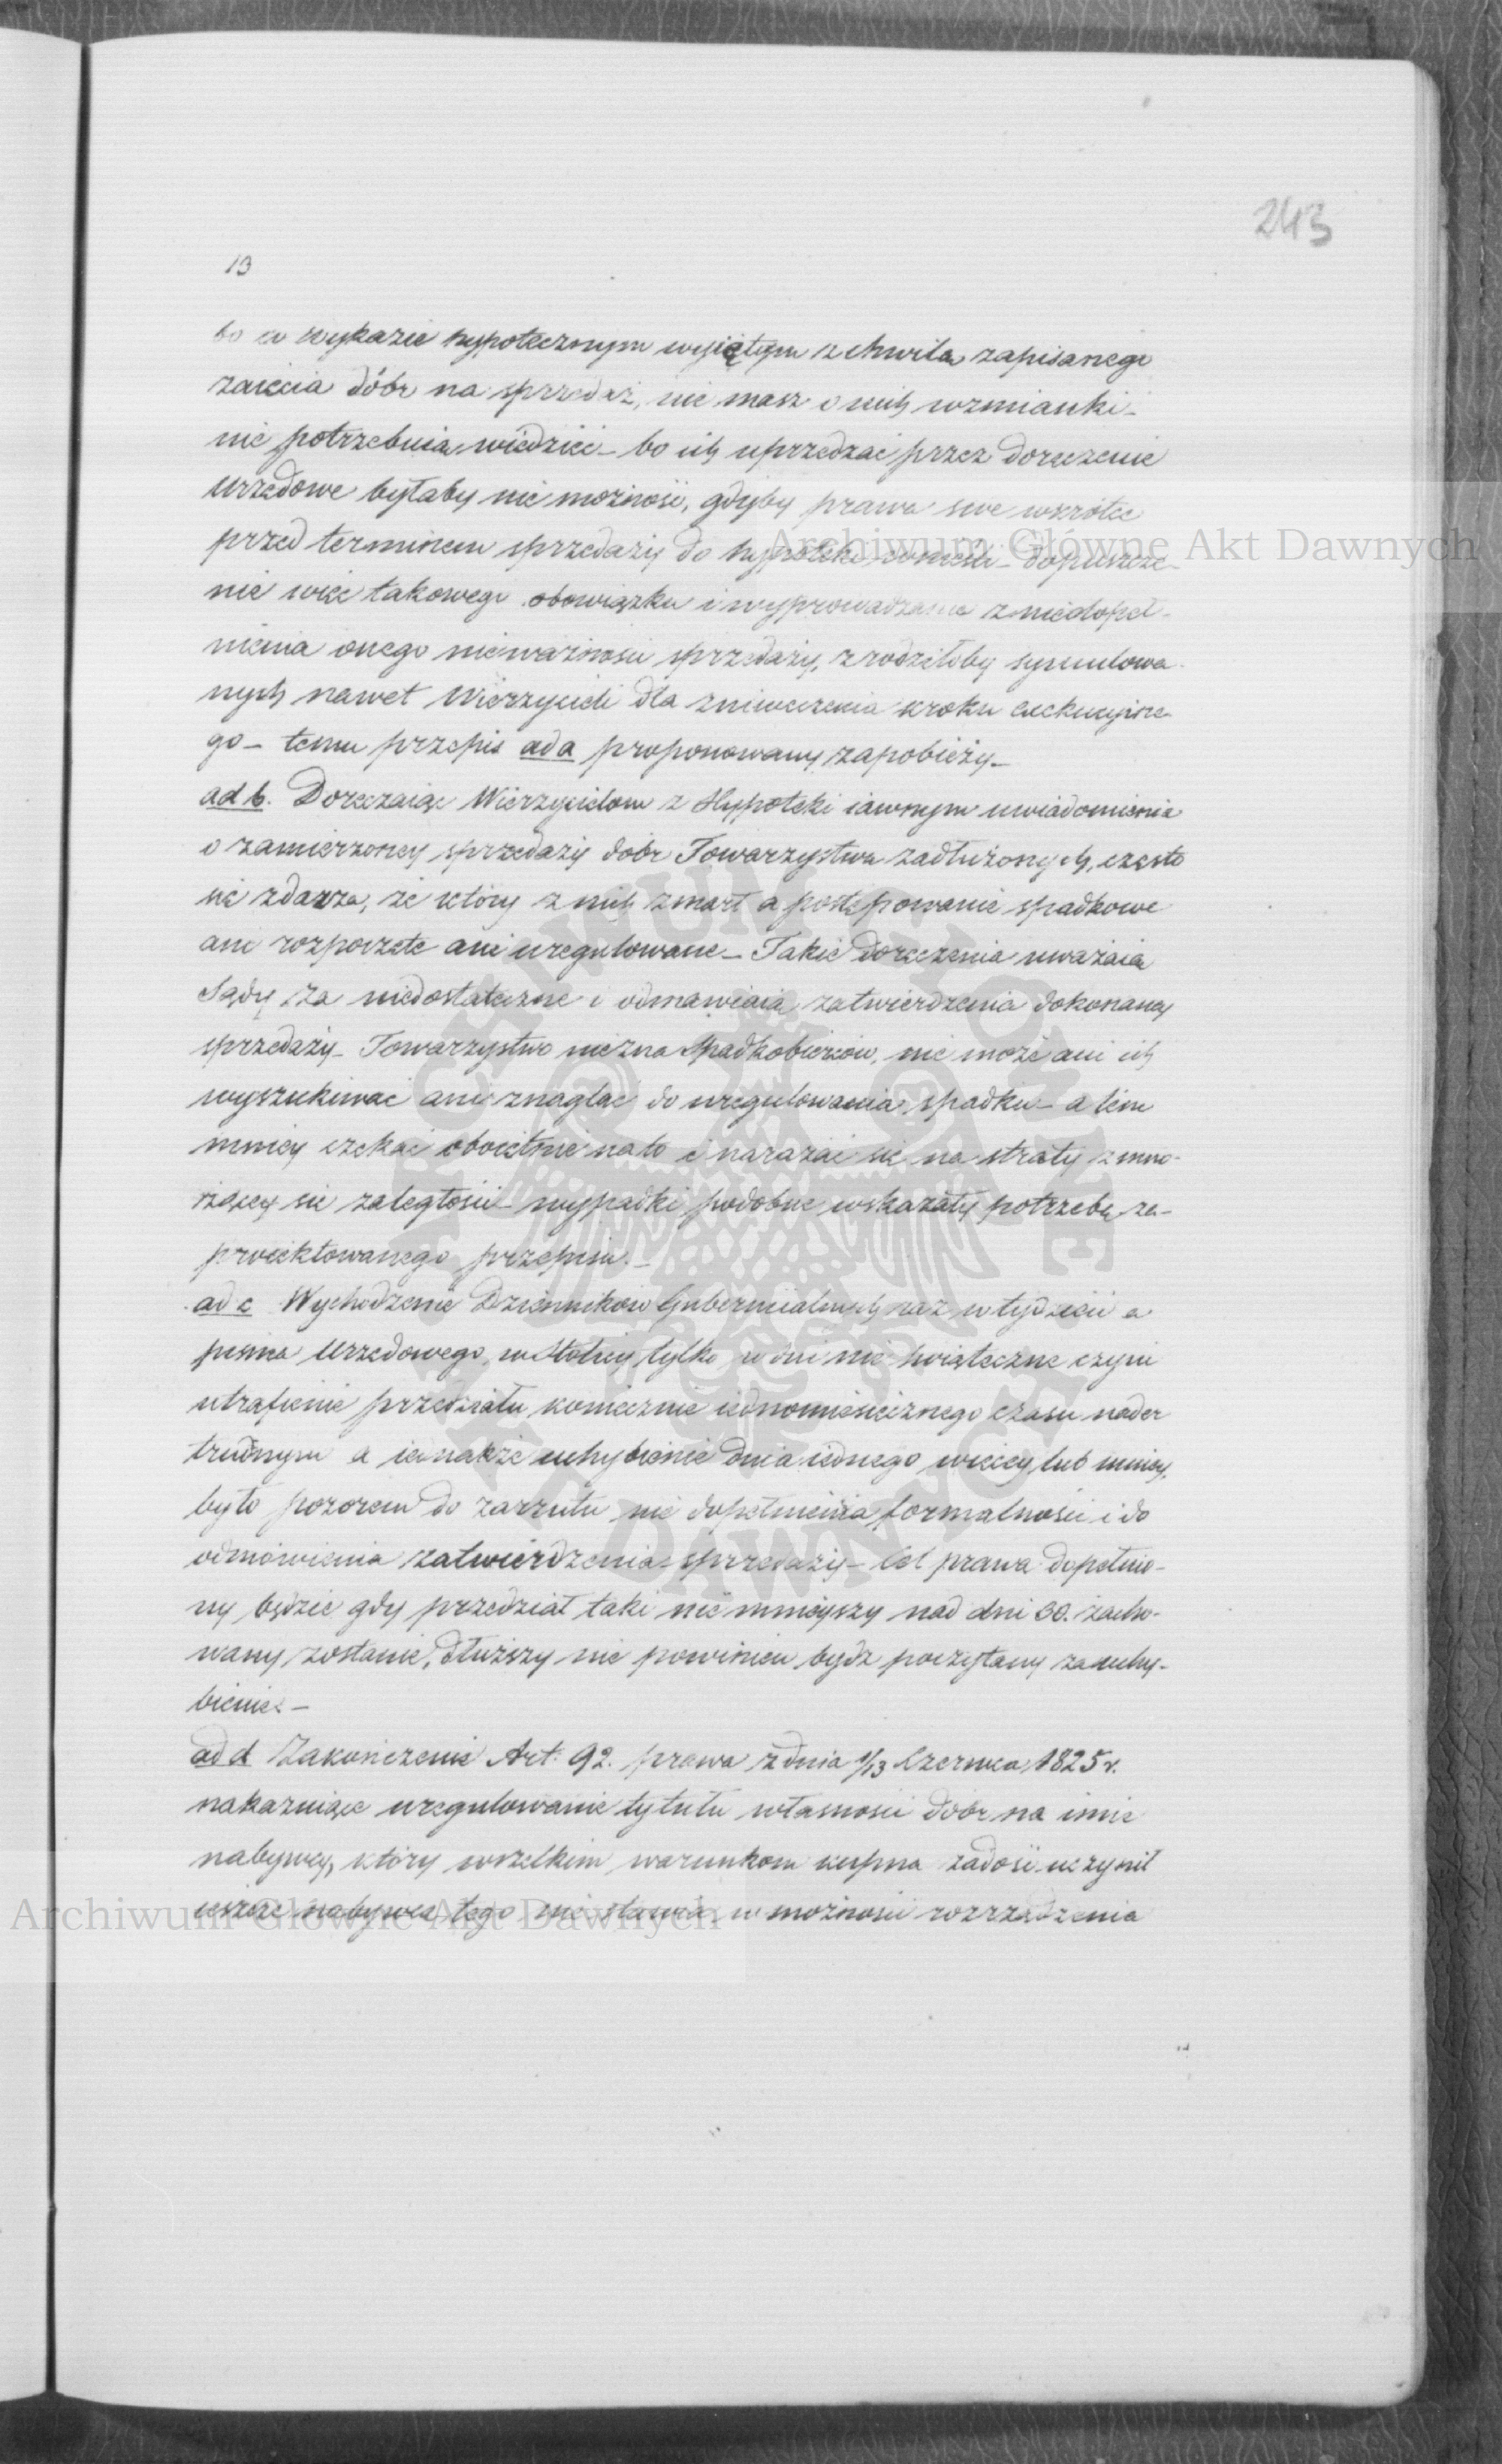 243
13
bo w wykazie hypotecznym wyjętym z chwilą zapisanego
zaięcia dóbr na sprzedaż, nie masz o nich wzmianki_
nie potrzebuią wiedzieć_ bo ich uprzedzać przez doręczenie
urzędowe byłaby nie możność, gdyby prawa swe wkrótce
przed terminem sprzedaży do hypoteki wnieśli_ dopuszcze_
nie więc takowego obowiązku i wyprowadzanie z niedopeł_
nienia onego nieważności sprzedaży, zrodziłoby symulowa_
nych nawet Wierzycieli dla zniweczenia kroku exekucyjne_
go_ temu przepis ad a proponowany zapobieży_
ad b. Doręczaiąc Wierzycielom z Hypoteki iawnym uwiadomienia
o zamierzoney sprzedaży dóbr Towarzystwu zadłużonych, często
się zdarza, że który z nich zmarł a postępowanie spadkowe
ani rozpoczęte ani uregulowane_ Takie doręczenia uważaią
Sądy za niedostateczne i odmawiaią zatwierdzenia dokonaney
sprzedaży_ Towarzystwo niezna Spadkobierców, nie może ani ich
wyszukiwać ani znaglać do uregulowania spadku_ a tem
mniey czekać oboiętnie na to i narażać się na straty z mno_
żącey się zaległości_ wypadki podobne wskazały potrzebę za_
proiektowanego przepisu._
ad c Wychodzenie Dzienników Gubernialnych raz w tydzień a
pisma Urzędowego w Stolicy tylko w dni nie świąteczne czyni
utrafienie przedziału koniecznie iednomiesięcznego czasu nader
trudnym a iednakże uchybienie dnia iednego więcey lub mniey,
było pozorem do zarzutu nie dopełnienia formalności i do
odmówienia zatwierdzenia sprzedaży_ Cel prawa dopełnio_
ny będzie gdy przedział taki nie mnieyszy nad dni 30. zacho_
wany zostanie, dłuższy nie powinien bydź poczytany za uchy_
bienie_
ad d Zakończenie Art. 92. prawa z dnia 1/13 Czerwca 1825 r.
nakazuiące uregulowanie tytułu własności dóbr na imie
nabywcy, który wszelkim warunkom kupna zadość uczynił
ieszcze nabywcę tego nie stawia w możności rozrządzenia
Archiwum Główne Akt Dawnych
Archiwum Główne Akt Dawnych
ARCHIWUM GŁÓWNE AKT DAWNYCH